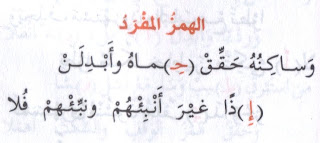 الهمزُ المفْرَدُ
وَسَاكِنُهُ حَقِّقْ (حِـ)ـماهُ وأَبْدِلَنْ
(إِ)ذًا غيْرَ أَنْبِئْهُمْ ونبِّئْهم فُلا